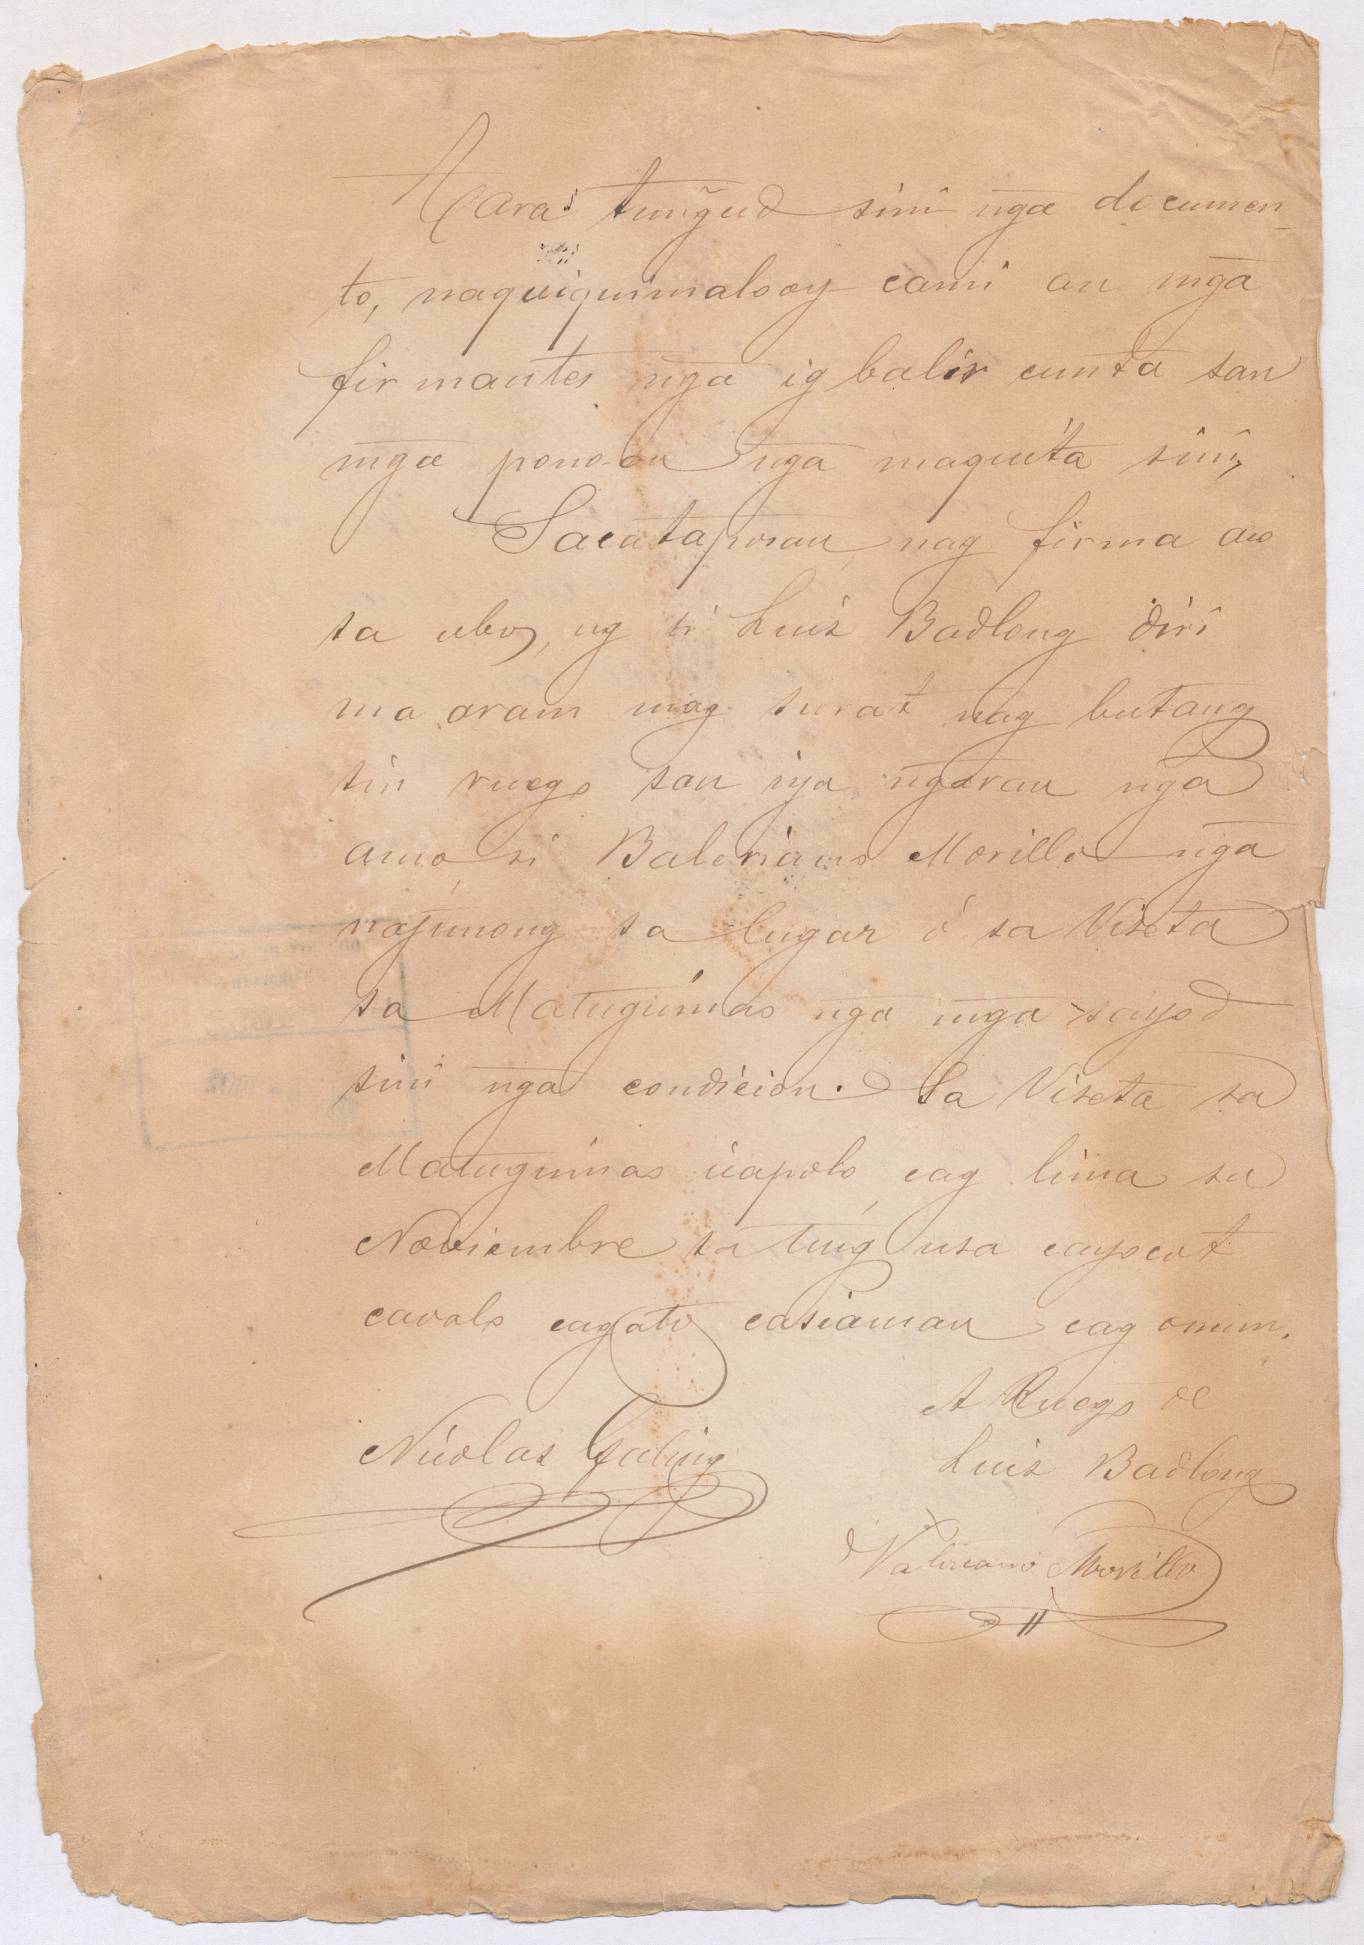 Cara tungud sini nga documen-
to, naquiquimalooy cami an mga
firmantes nga ig balir cunta san
mga ponoan nga maquita sini,
Sacataposan, nag firma aco
sa ubos, ug si Luis Badlong diri
maaram mag surat nag butang
sin ruego san iya ngaran nga
amo si Baleriano Morillo nga
najunong sa lugar ó sa Viseta
sa Matuguinao nga mga sayod
sini nga condicion. Sa Viseta sa
Matuguinao icapolo cag lima sa
Noviembre sa tuig usa cayocot
cavalo cagato casiaman cag onum.
A Ruego de
Nicolas Gabing Luis Badlong
Valeriano Morillo